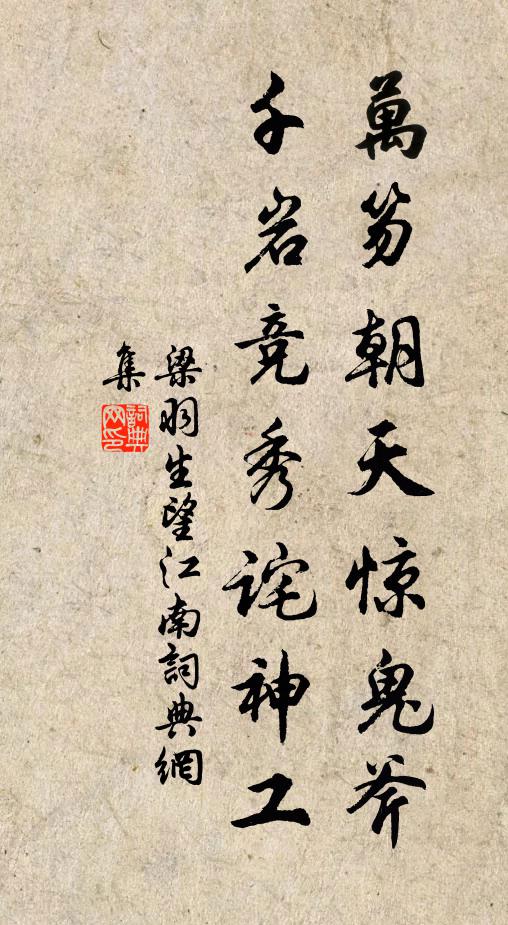 萬笏朝天惊鬼斧
千岩竞秀詫神工
梁羽生望江南詞典網
集
詞典網印